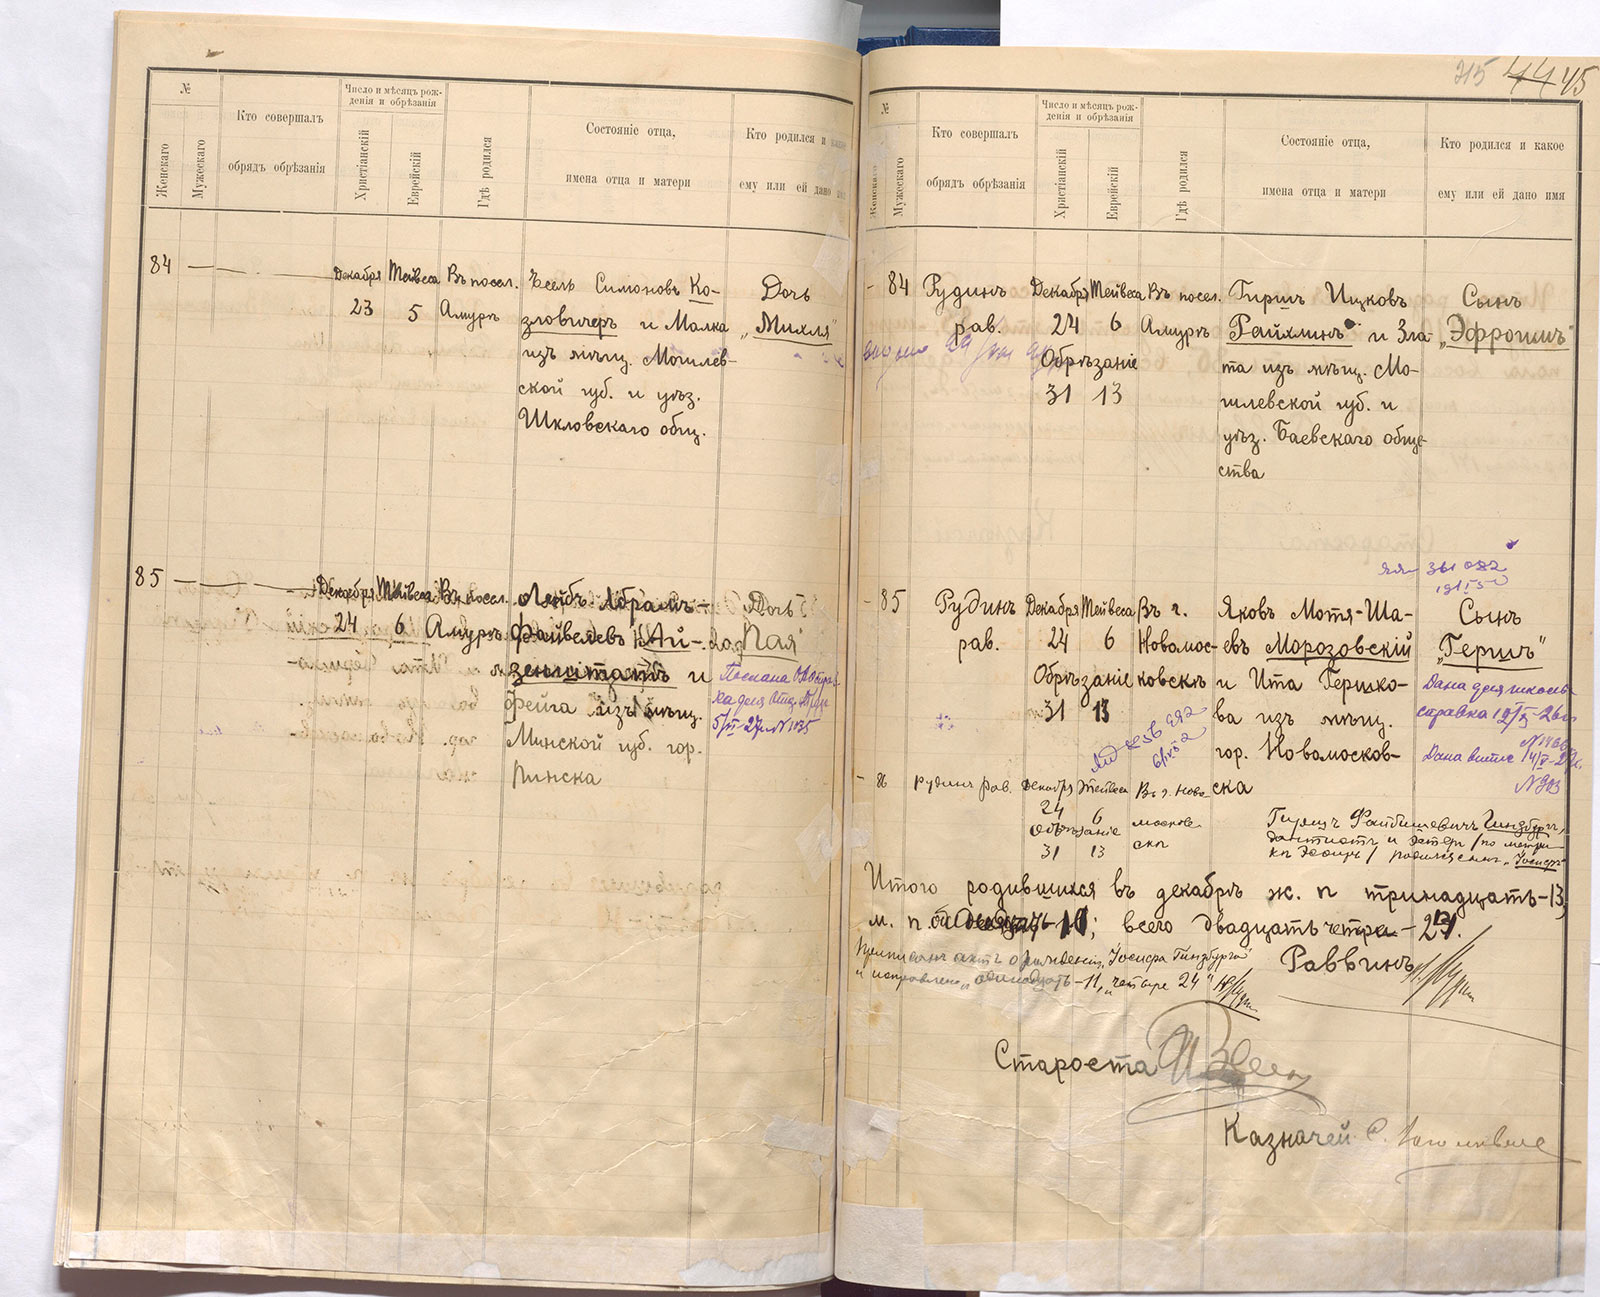 №
Женскаго
Мужескаго
Кто совершалъ
обрядъ обрѣзанія
Число и мѣсяцъ рож-
денія и обрѣзанія
Христіанскій
Еврейскій
Гдѣ родился
Состояніе отца,
имена отца и матери
Кто родился и какое
ему или ей дано имя
84
Декабря
23
Тейвеса
5
Въ посел.
Амурѣ
Симоновъ Ко-
зловичеръ и Малка
изъ мѣщ. Могилев-
ской губ. и уѣз.
Шкловскаго общ.
Дочь
„Михля"
85
Декабря
24
Тейвеса
6
Въ посел.
Амурѣ
Лейбъ-Абрамъ-
Файвелевъ Ай-
зенштатъ и
Фейга изъ мѣщ.
Минской губ. гор.
Пинска
Дочь
315 44 45
№
Женскаго
Мужескаго
Кто совершалъ
обрядъ обрѣзанія
Число и мѣсяцъ рож-
денія и обрѣзанія
Христіанскій
Еврейскій
Гдѣ родился
Состояніе отца,
имена отца и матери
Кто родился и какое
ему или ей дано имя
84
Рудинъ
рав.
Декабря Тейвеса
24 6
Обрѣзаніе
31 13
Въ посел.
Амурѣ
Гиршъ Ицковъ
Райхлинъ и Зла-
та изъ мѣщ. Мо-
гилевской губ. и
уѣз. Баевскаго обще-
ства
Сынъ
„Эфроимъ"
85
Рудинъ
рав.
Декабря Тейвеса
24 6
Обрѣзаніе
31 13
Въ г.
Новомос-
ковскѣ
Яковъ Мотя-Ша-
евъ Морозовскій
и Ита Гершко-
ва изъ мѣщ.
гор. Новомосков-
ска
Сынъ
„Гершъ"
Дана для школы
справка
86
Рудинъ рав.
Декабря Тейвеса
24 6
Обрѣзаніе
31 13
Въ г. Ново-
московс-
кѣ
Гиршъ Файбишевичъ Гинзбургъ,
дантистъ и Эстеръ /по метри-
кѣ Эсѳирь/ родился сынъ „Іосифъ"
Итого родившихся въ декабрѣ ж. п тринадцать-13,
м. п. 11; всего двадцать четыре - 24.
актъ о рожденіи „Іосифа Гинзбурга"
и исправлено „одинадцать-11, „четыре 24"
Раввинъ
Староста
Казначей